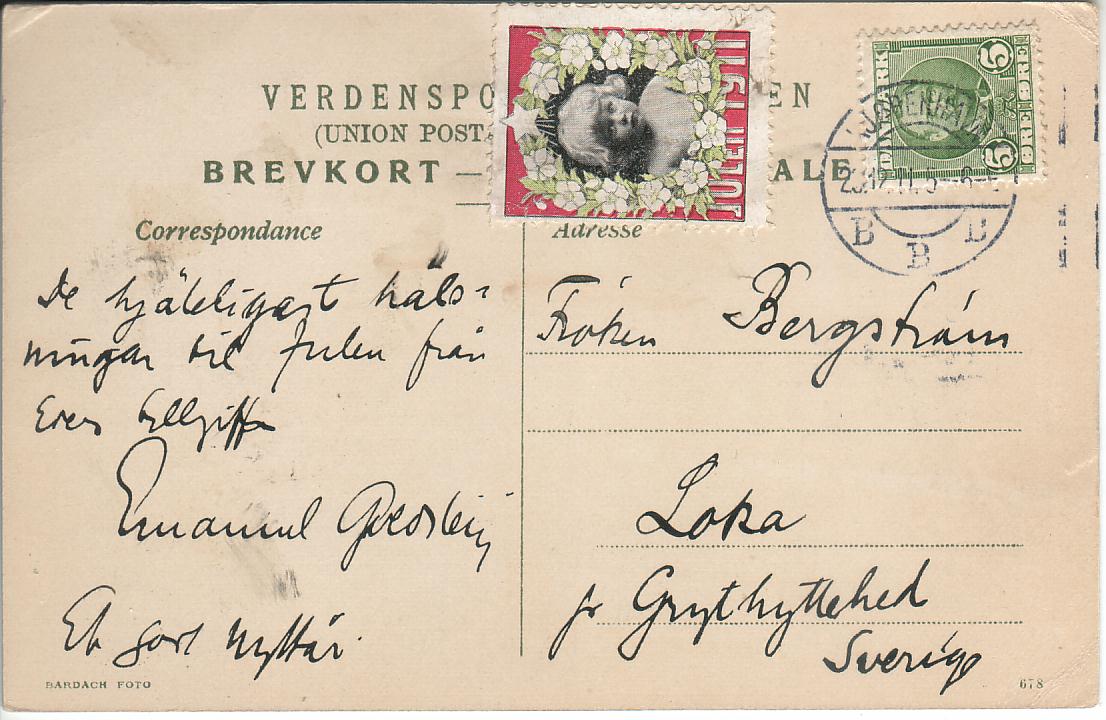 VERDENSPO EN
(UNION POSTA
BREVKORT — ALE
JULEN 1911
DANMARK
5 ØRE 5 ØRE
KJØBENHAVN
12.11.5-6
B B B
Correspondance
De hjärtligast häls=
ningar til Julen från
Eders
Emanuel
Et godt nyttår
Adresse
Fröken Bergström
Loka
pr Grythyttehed
Sverige
BARDACH FOTO
678